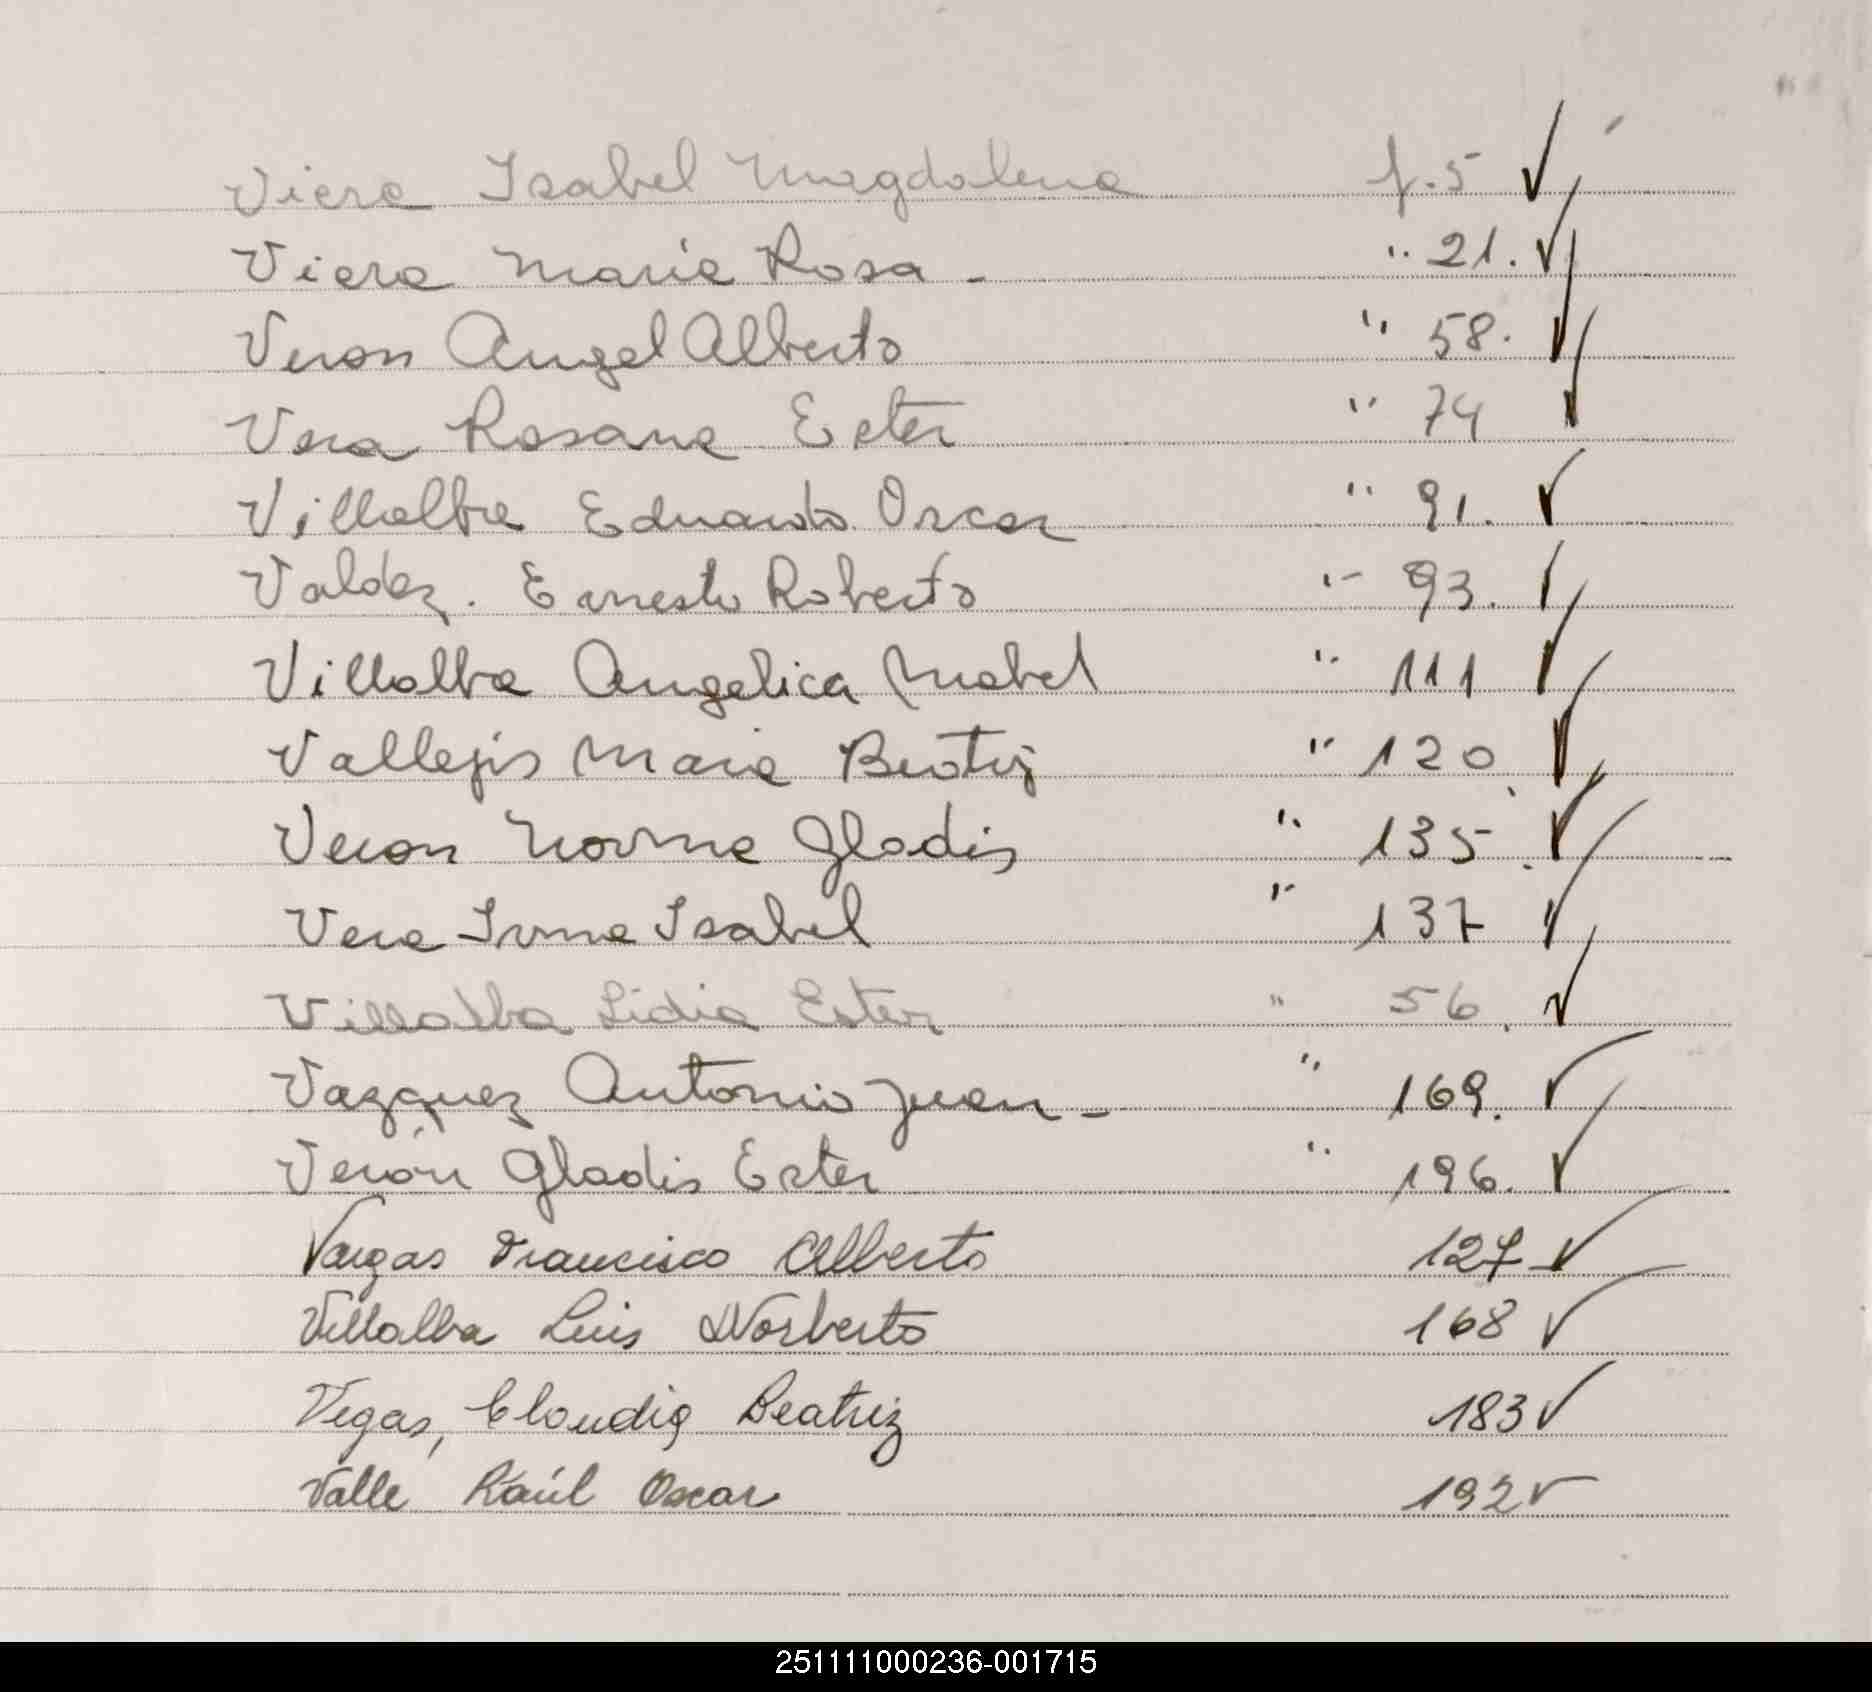 Viera Isabel Magdalena f. 5 ✓
Viera Maria Rosa - " 21. ✓
Veron Angel Alberto " 58. ✓
Vera Rosana Ester " 74 ✓
Villalba Eduardo Oscar " 91. ✓
Valdez. Ernesto Roberto " 93. ✓
Villalba Angelica Mabel " 111 ✓
Vallejos Maria Beatriz " 120 ✓
Veron Norma Gladis " 135. ✓
Vera Irma Isabel " 137 ✓
Villalba Lidia Ester " 56. ✓
Vazquez Antonio Juan - " 169. ✓
Verón Gladis Ester " 196. ✓
Vargas Francisco Alberto 127 ✓
Villalba Luis Norberto 168 ✓
Vegas, Claudia Beatriz 183 ✓
Valle Raúl Oscar 192 ✓
251111000236-001715